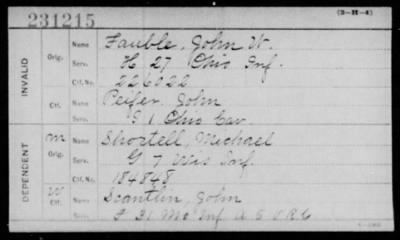 231215
(3-H-4)
INVALID
Orig.
Name Fauble, John W.
Serv. H 27 Ohio Inf.
Ctf. No. 226022
Ctf.
Name Peifer, John
Serv. G 1 Ohio Cav
DEPENDENT
m Orig.
Name Shortell, Michael
Serv. G 7 Wis Inf.
Ctf. No. 184848
W Ctf.
Name Scantlin, John
Serv. F 31 Mo Inf